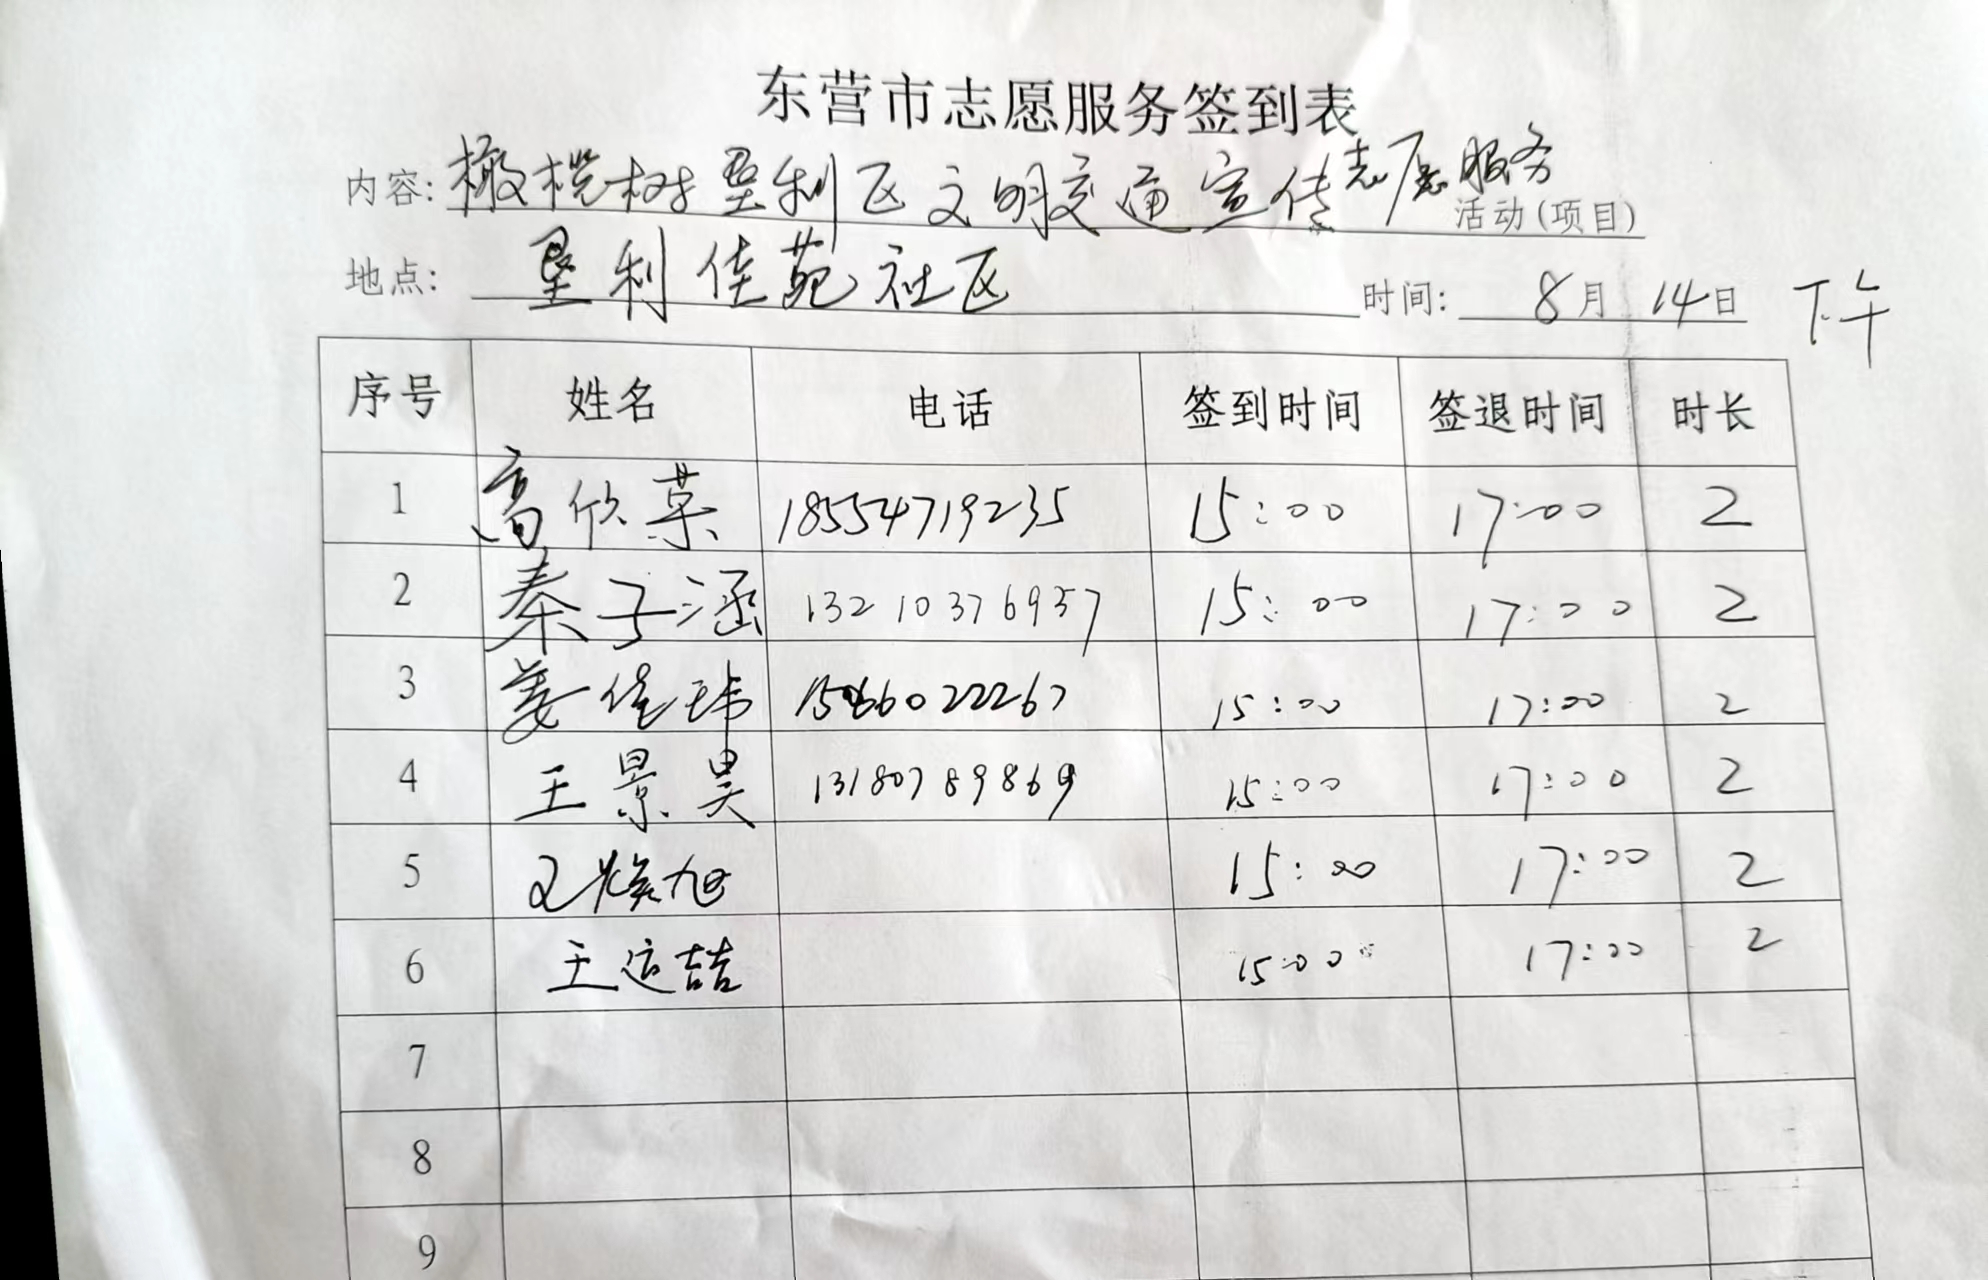 东营市志愿服务签到表
内容: 橄榄树垦利区文明交通宣传志愿服务 活动(项目)
地点: 垦利佳苑社区 时间: 8月14日 下午
序号 姓名 电话 签到时间 签退时间 时长
1 高欣菜 18554719235 15:00 17:00 2
2 秦子涵 13210376937 15:00 17:00 2
3 姜佳玮 15066022267 15:00 17:00 2
4 王景昊 13180789869 15:00 17:00 2
5 王焕旭 15:00 17:00 2
6 王喆 15:00 17:00 2
7
8
9